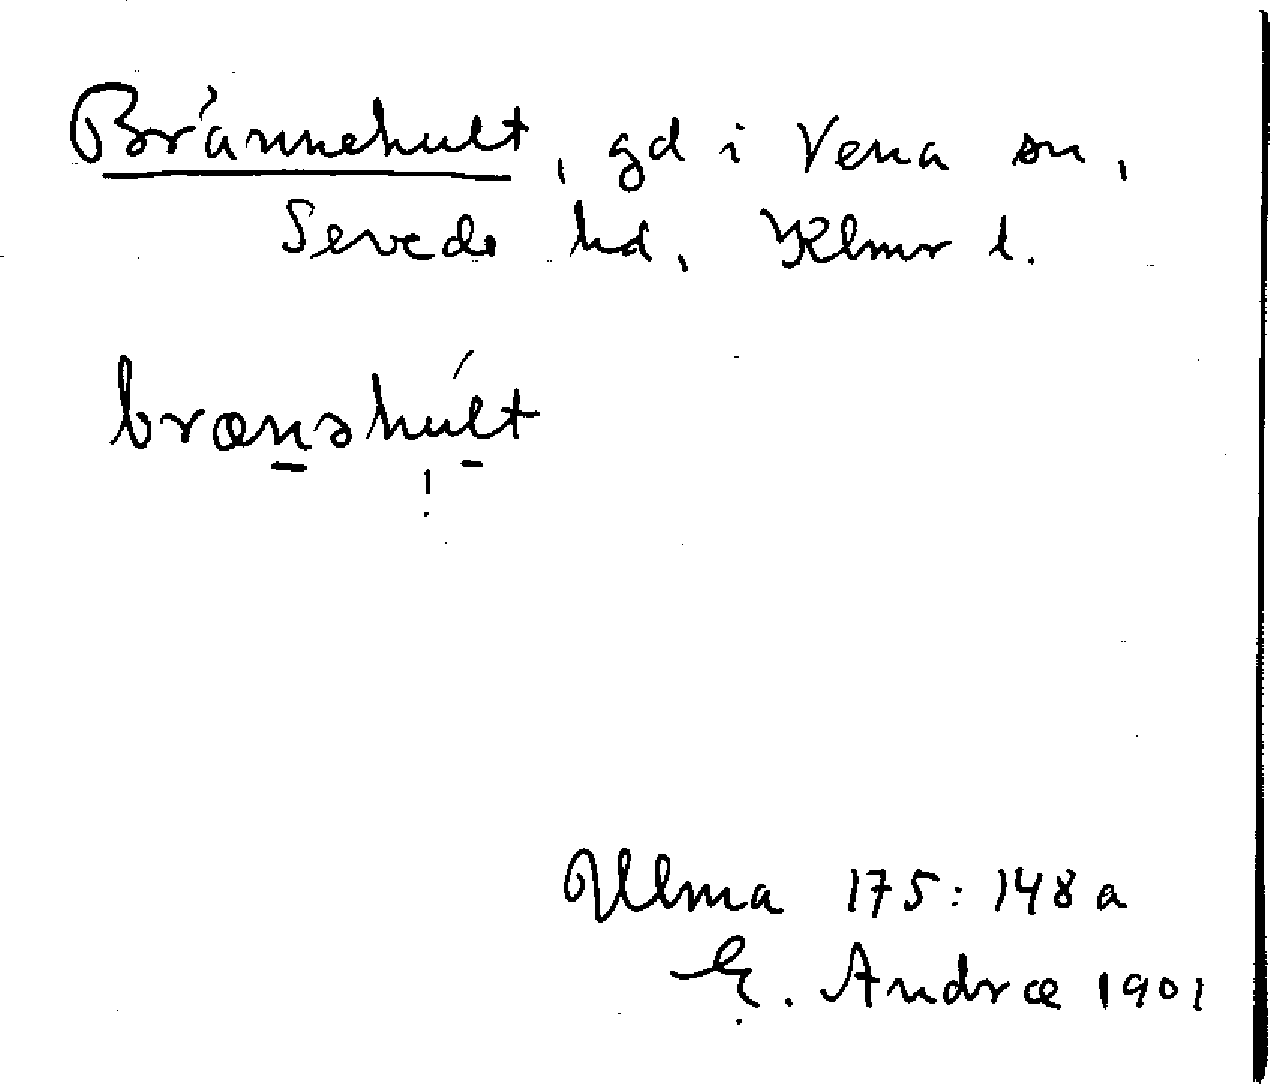 Brännehult, gd i Vena sn,
Sevede hd, Klmr l.
brænəhúlt
!
Ulma 175:148 a
E. Andræ 1901